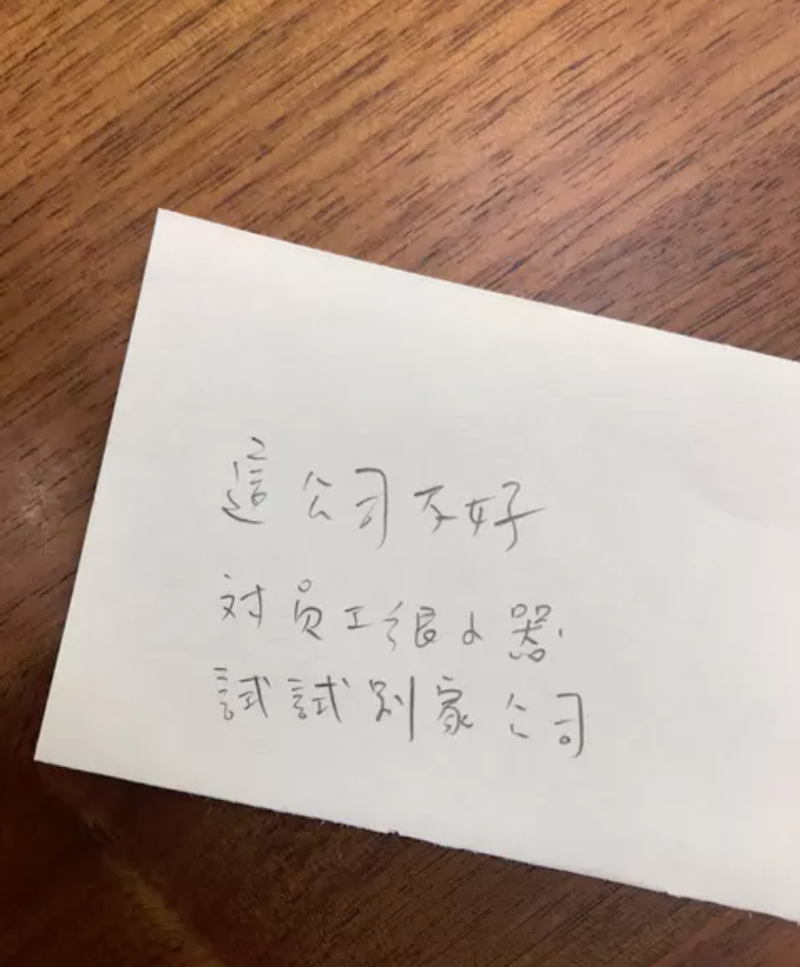 這公司不好
対員工很小器
試試別家公司